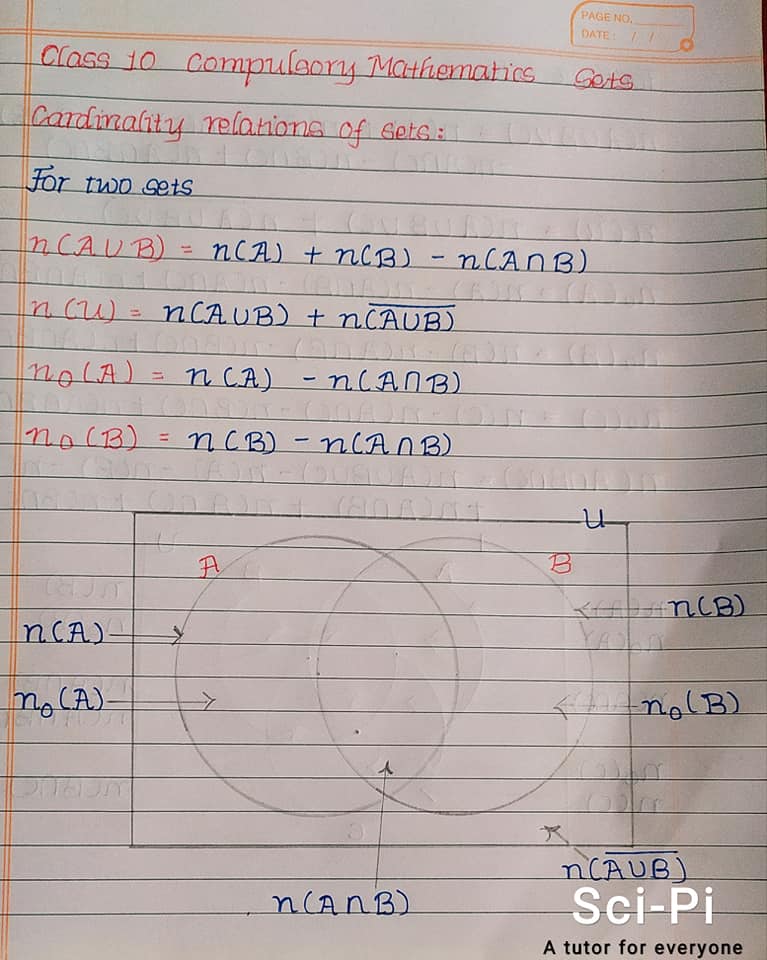 PAGE NO.
DATE: / /
Class 10 Compulsory Mathematics Sets
Cardinality relations of sets:
For two sets
n(A∪B) = n(A) + n(B) - n(A∩B)
n(U) = n(A∪B) + n(A̅∪̅B̅)
n₀(A) = n(A) - n(A∩B)
n₀(B) = n(B) - n(A∩B)
U
A B
n(B)
n(A)
n₀(A) n₀(B)
n(A̅∪̅B̅)
n(A∩B)
Sci-Pi
A tutor for everyone